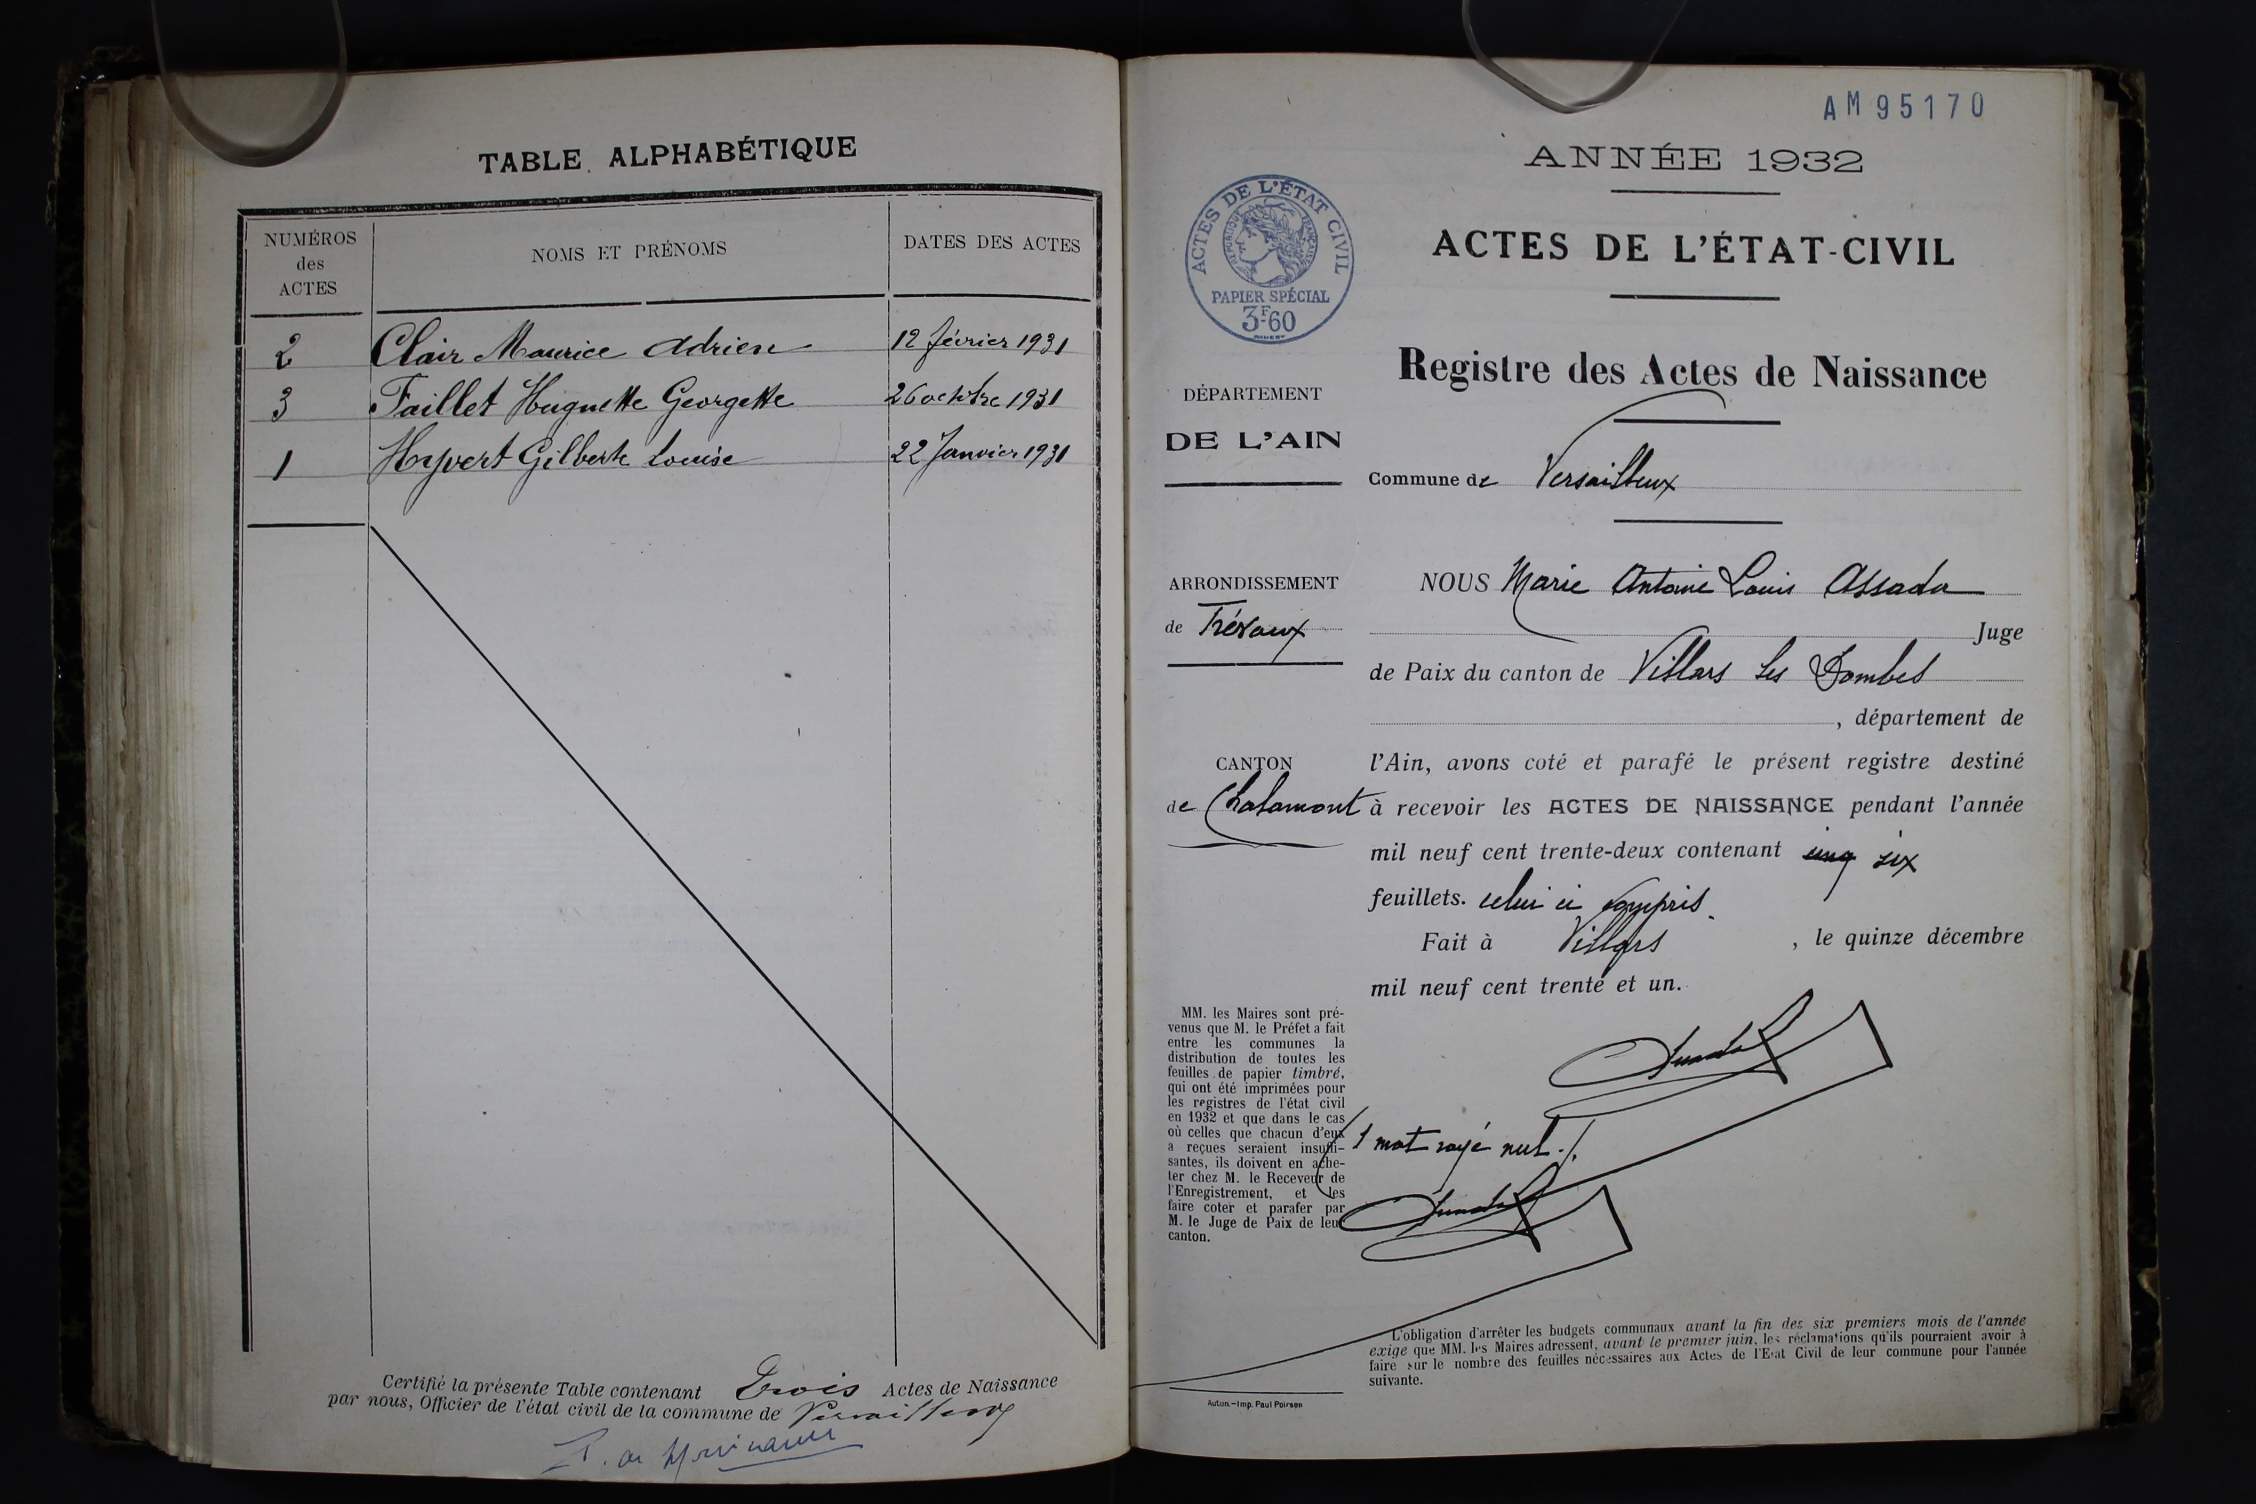 TABLE ALPHABÉTIQUE
NUMÉROS
des
ACTES
NOMS ET PRÉNOMS
DATES DES ACTES
2 Clair Maurice Adrien 12 février 1931
3 Faillet Huguette Georgette 26 octobre 1931
1 Hyvert Gilberte Louise 22 Janvier 1931
Certifié la présente Table contenant Trois Actes de Naissance
par nous, Officier de l'état civil de la commune de Versailleux
AM95170
ANNÉE 1932
ACTES DE L'ÉTAT CIVIL
RÉPUBLIQUE FRANÇAISE
PAPIER SPÉCIAL
3F60
ACTES DE L'ÉTAT-CIVIL
Registre des Actes de Naissance
DÉPARTEMENT
DE L'AIN
Commune de Versailleux
ARRONDISSEMENT
de Trévoux
CANTON
de Chalamont
NOUS Marie Antoine Louis Assada
Juge
de Paix du canton de Villars les Dombes
, département de
l'Ain, avons coté et parafé le présent registre destiné
à recevoir les ACTES DE NAISSANCE pendant l'année
mil neuf cent trente-deux contenant cinq six
feuillets. celui ci compris
Fait à Villars , le quinze décembre
mil neuf cent trente et un.
1 mot rayé nul.
MM. les Maires sont pré-
venus que M. le Préfet a fait
entre les communes la
distribution de toutes les
feuilles de papier timbré,
qui ont été imprimées pour
les registres de l'état civil
en 1932 et que dans le cas
où celles que chacun d'eux
a reçues seraient insuffi-
santes, ils doivent en ache-
ter chez M. le Receveur de
l'Enregistrement, et les
faire coter et parafer par
M. le Juge de Paix de leur
canton.
L'obligation d'arrêter les budgets communaux avant la fin des six premiers mois de l'année
exige que MM. les Maires adressent, avant le premier juin, les réclamations qu'ils pourraient avoir à
faire sur le nombre des feuilles nécessaires aux Actes de l'Etat Civil de leur commune pour l'année
suivante.
Autun.-Imp. Paul Poirson